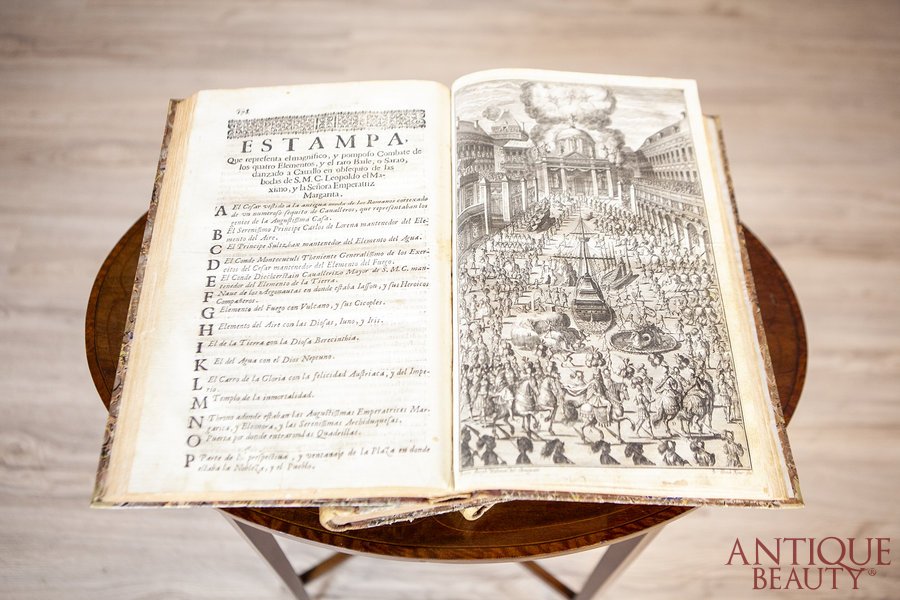 ESTAMPA,
Que representa el magnifico, y pomposo Combate de
los quatro Elementos, y el raro Baile, o Sarao,
danzado a Cauallo en obsequio de las
bodas de S. M. C. Leopoldo el Ma-
ximo, y la Señora Emperatriz
Margarita.
A El Cesar vestido a la antigua moda de los Romanos cortexado
de vn numeroso sequito de Caualleros, que representaban los
genios de la Augustissima Casa.
B El Serenissimo Principe Carlos de Lorena mantenedor del Ele-
mento del Aire.
C El Principe Sultzbak mantenedor del Elemento del Agua.
D El Conde Montecuculi Theniente Generalissimo de los Exer-
citos del Cesar mantenedor del Elemento del Fuego.
E El Conde Dieckerstain Cauallerizo Mayor de S. M. C. man-
tenedor del Elemento de la Tierra.
F Naue de los Argonautas en donde estaba Iasson, y sus Heroicos
Compañeros.
G Elemento del Fuego con Vulcano, y sus Cicoples.
H Elemento del Aire con las Diosas, Iuno, y Iris.
I El de la Tierra con la Diosa Berecinthia.
K El del Agua con el Dios Neptuno.
L El Carro de la Gloria con la felicidad Austriaca, y del Impe-
rio.
M Templo de la inmortalidad.
N Throno adonde estaban las Augustissimas Emperatrices Mar-
garita, y Eleonora, y las Serenissimas Archiduquesas.
O Puerta por donde entraron las Quadrillas.
P Parte de la prespectiua, y ventanaje de la Plaza en donde
estaba la Nobleza, y el Pueblo.
ANTIQUE
BEAUTY®